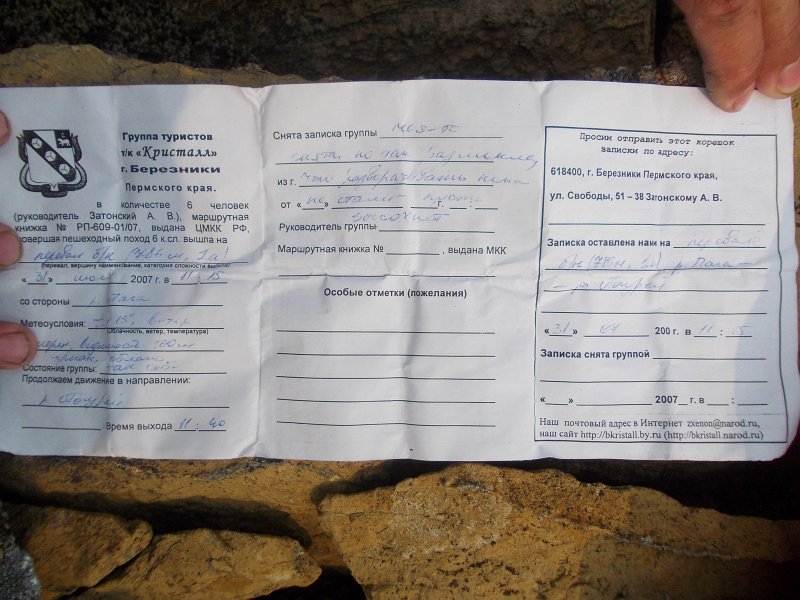 Группа туристов
т/к «Кристалл»
г. Березники
Пермского края.
в количестве 6 человек
(руководитель Затонский А. В.), маршрутная
книжка № РП-609-01/07, выдана ЦМКК РФ,
совершая пешеходный поход 6 к.сл. вышла на
перевал б/н (786 м, 1а)
(перевал, вершину наименование, категория сложности высоту)
«31» июля 2007 г. в 11 : 15
со стороны р.
Метеоусловия: +13°, ветер
(облачность, ветер, температура)
видимость 100 м
Состояние группы:
Продолжаем движение в направлении:
р.
Время выхода 11 : 40
Снята записка группы
из г. что
от « » г.
Руководитель группы
Маршрутная книжка № , выдана МКК
Особые отметки (пожелания)
Просим отправить этот корешок
записки по адресу:
618400, г. Березники Пермского края,
ул. Свободы, 51 – 38 Затонскому А. В.
Записка оставлена нами на перевале
б/н (786 м, 1а) р.
– р.
«31» 07 200 г. в 11 : 15
Записка снята группой
« » 2007 г. в :
Наш почтовый адрес в Интернет zxenon@narod.ru,
наш сайт http://bkristall.by.ru (http://bkristall.narod.ru)